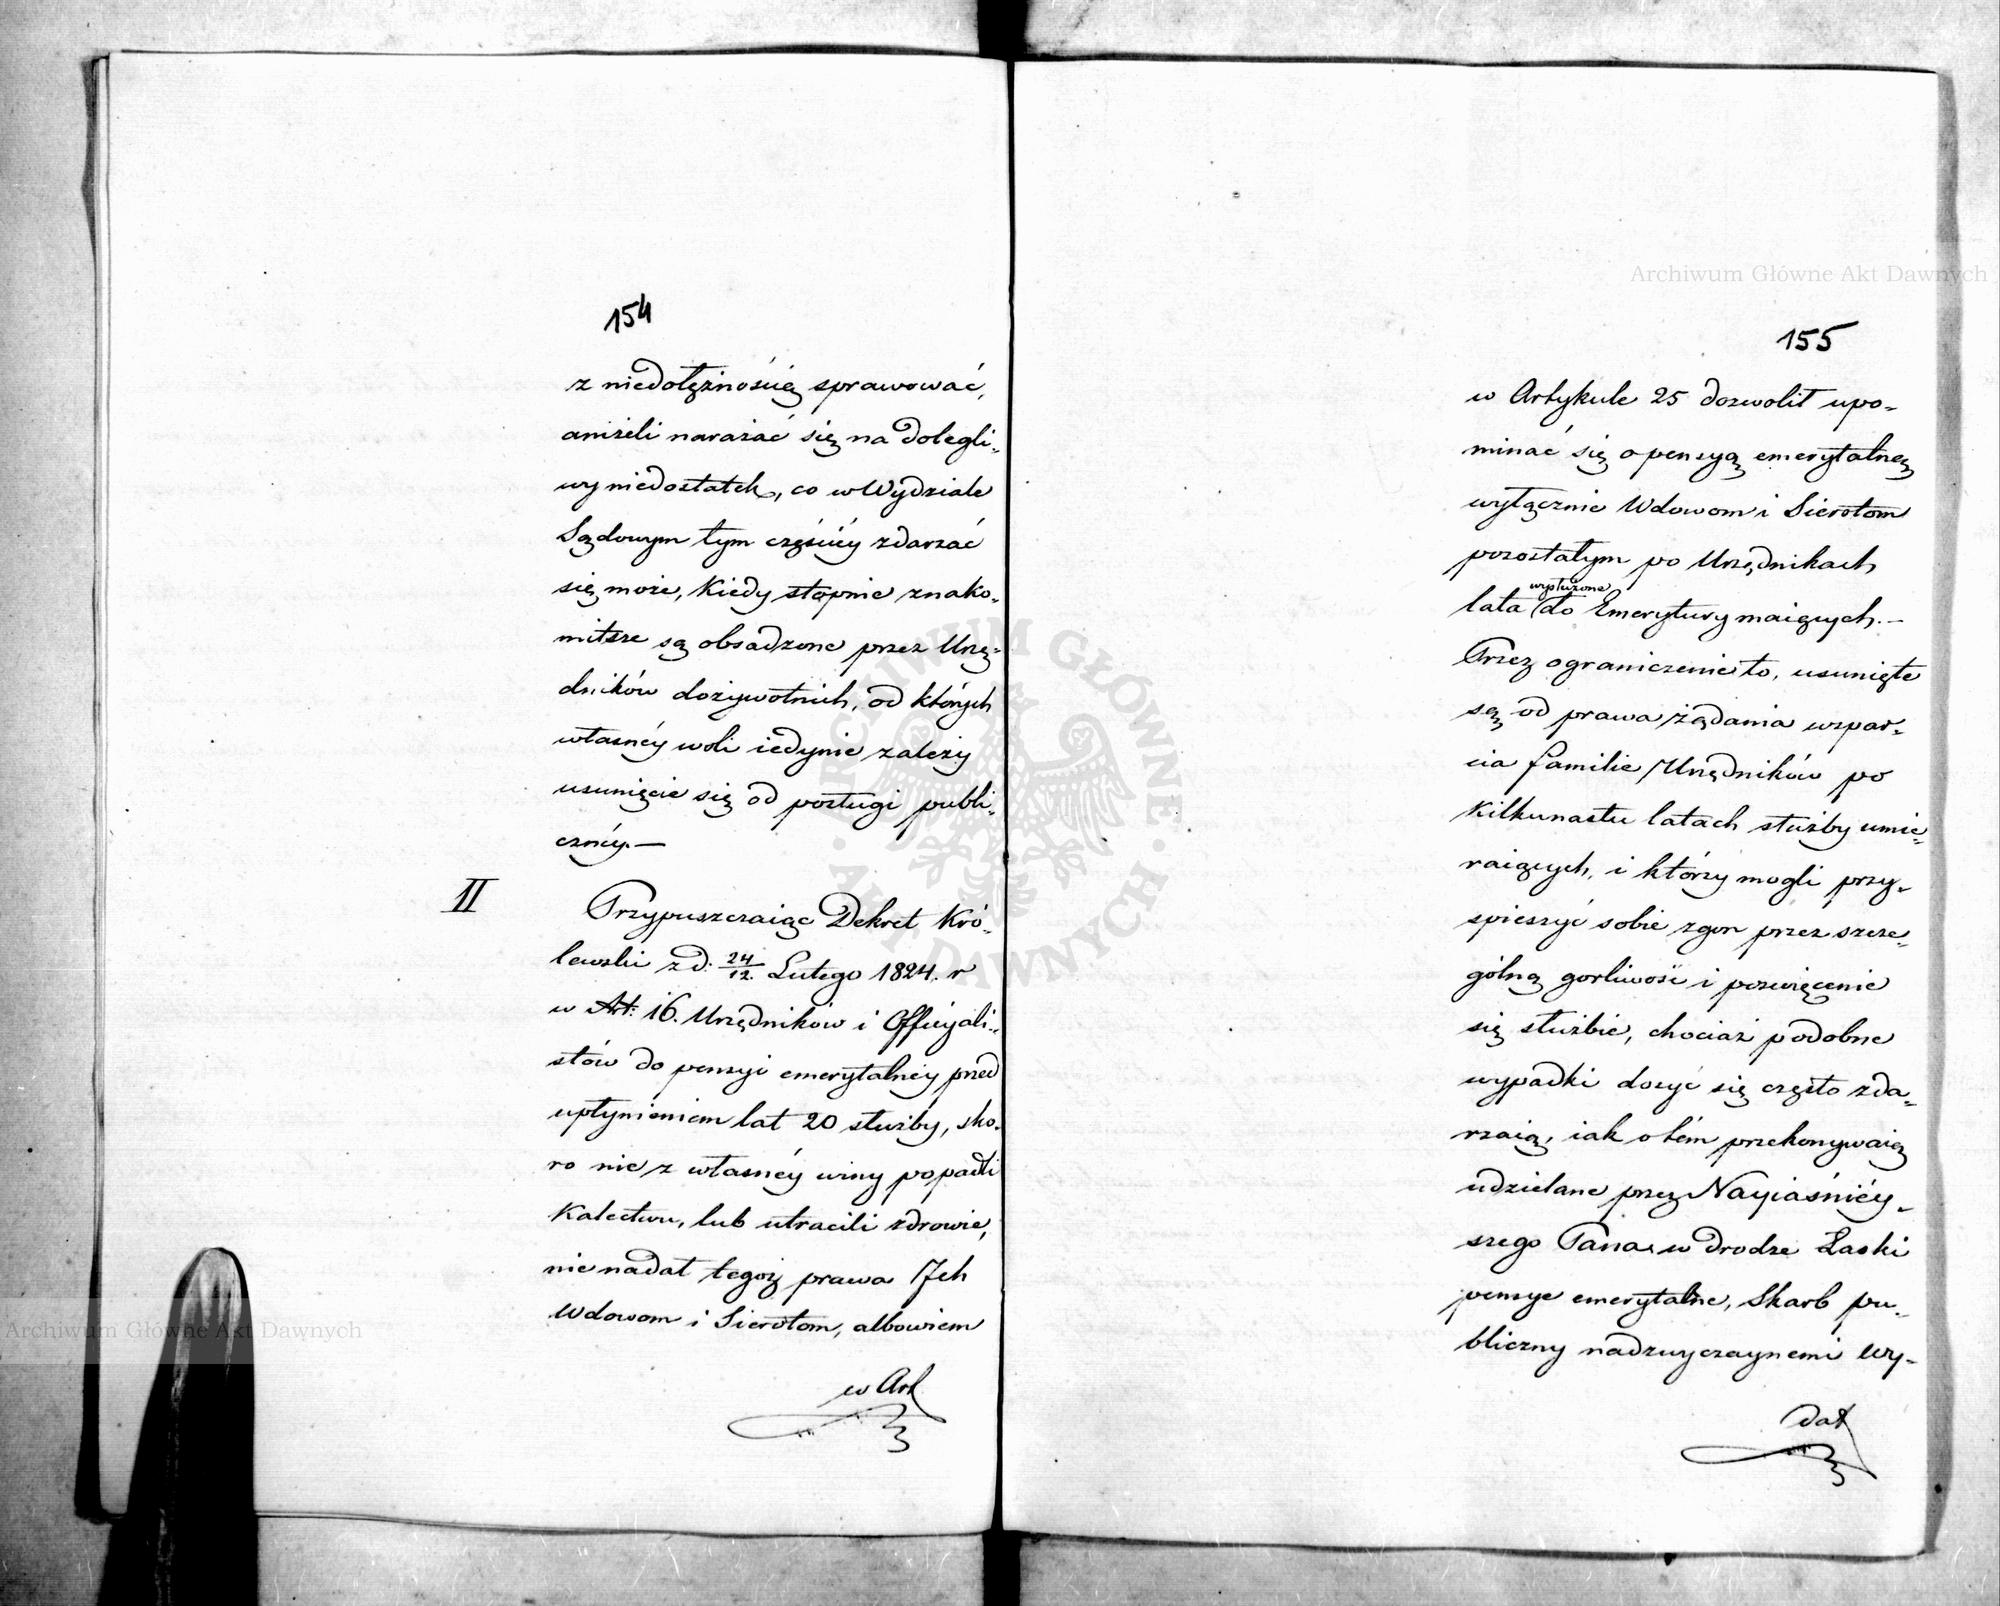 154
z niedołężnością sprawować,
aniżeli narażać się na dolegli-
wy niedostatek, co w Wydziale
Sądowym tym częściéy zdarzać
się może, kiedy stopnie znako-
mitsze są obsadzone przez Urzę-
dników dożywotnich, od których
własnéy woli iedynie zależy
usunięcie się od posługi publi-
cznéy.—
II
Przypuszczaiąc Dekret Kró-
lewski z d. 24/12. Lutego 1824. r
w Art: 16. Urzędników i Officyali-
stów do pensyi emerytalnéy przed
upłynieniem lat 20 służby, sko-
ro nie z własnéy winy popadli
kalectwu, lub utracili zdrowie,
nie nadał tegoż prawa Ich
Wdowom i Sierotom, albowiem
w Art
155
w Artykule 25 dozwolił upo-
minać się o pensyą emerytalną
wyłącznie Wdowom i Sierotom
pozostałym po Urzędnikach
wysłużone
lata do Emerytury maiących.—
Przez ograniczenie to, usunięte
są od prawa żądania wspar-
cia familie Urzędników po
kilkunastu latach służby umie-
raiących, i którzy mogli przy-
spieszyć sobie zgon przez szcze-
gólną gorliwość i poświęcenie
się służbie, chociaż podobne
wypadki dosyć się często zda-
rzaią, iak o tém przekonywaią
udzielane przez Nayiaśniéy-
szego Pana w drodze Łaski
pensye emerytalne, Skarb pu-
bliczny nadzwyczaynemi wy-
dat
Archiwum Główne Akt Dawnych
Archiwum Główne Akt Dawnych
ARCHIWUM GŁÓWNE · AKT DAWNYCH ·